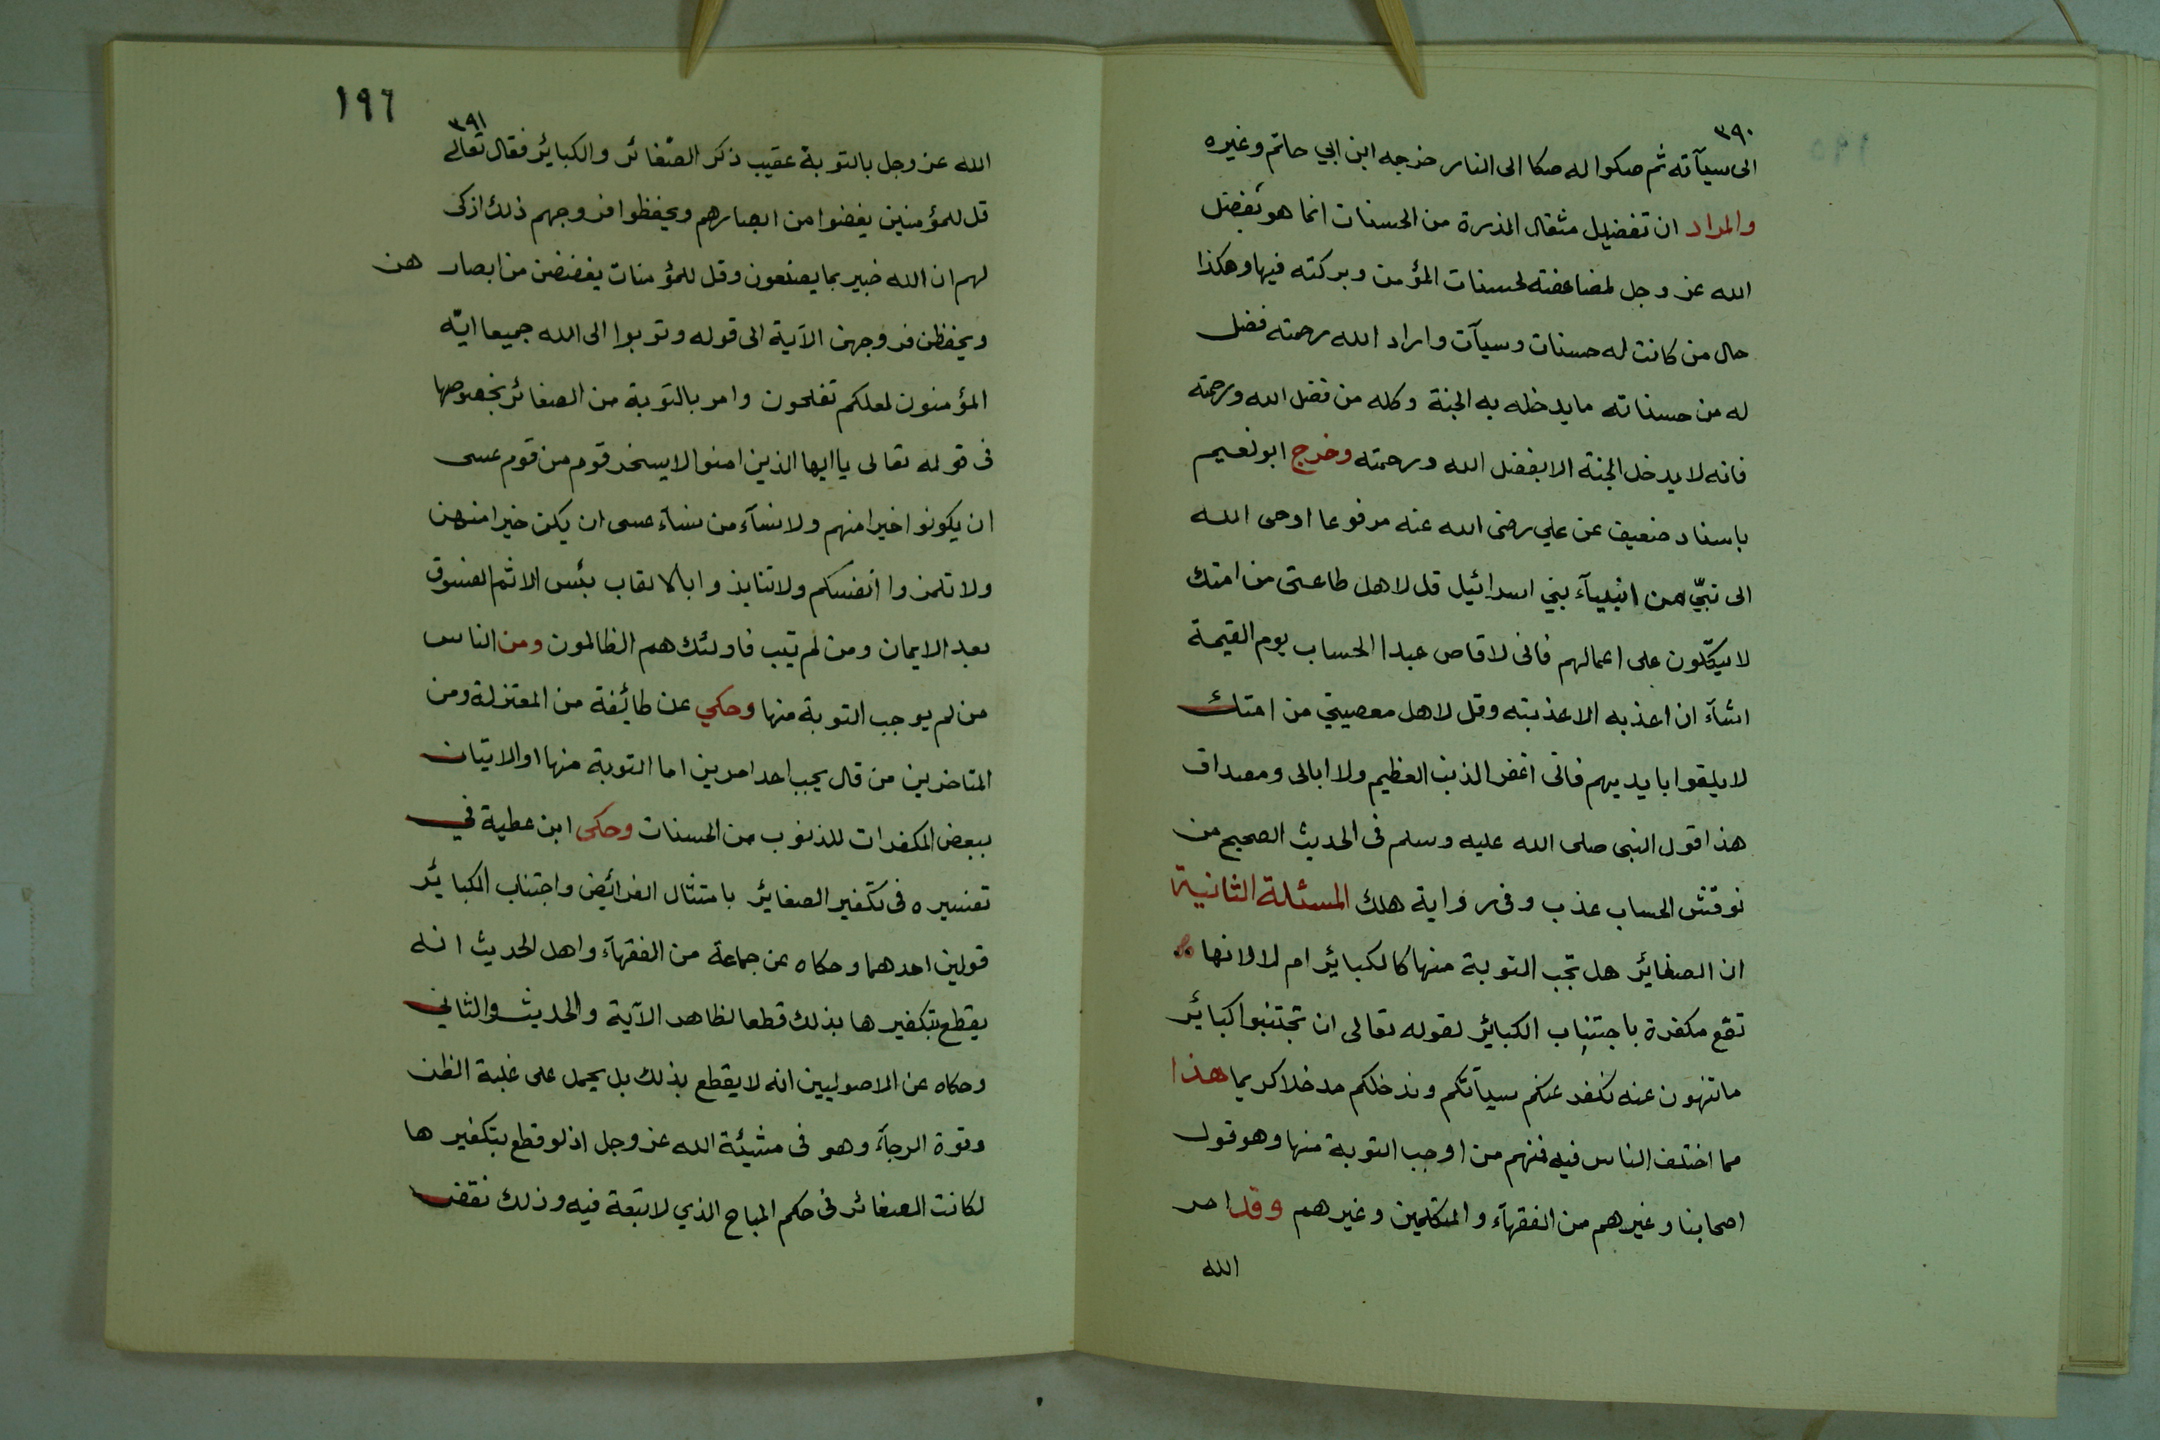 ٣٩٠
الى سيآته ثم صكوا له صكا الى النار خرجه ابن ابي حاتم وغيره
والمراد ان تفضيل مثقال الذرة من الحسنات انما هو بفضل
الله عز وجل لمضاعفته لحسنات المؤمن وبركته فيها وهكذا
حال من كانت له حسنات وسيآت واراد الله رحمته فضل
له من حسناته ما يدخله به الجنة وكله من فضل الله ورحمته
فانه لا يدخل الجنة الا بفضل الله ورحمته وخرج ابو نعيم
باسناد ضعيف عن علي رضى الله عنه مرفوعا اوحى الله
الى نبيّ من انبيآء بني اسرائيل قل لاهل طاعتى من امتك
لا يتكلون على اعمالهم فانى لا قاص عبدا الحساب يوم القيمة
اشآء ان اعذبه الا عذبته وقل لاهل معصيتي من امتك
لا يلقوا بايديهم فانى اغفر الذنب العظيم ولا ابالى ومصداق
هذا قول النبى صلى الله عليه وسلم فى الحديث الصحيح من
نوقش الحساب عذب وفى رواية هلك المسئلة الثانية
ان الصغائر هل تجب التوبة منها كالكبائر ام لا لانها
تقع مكفرة باجتناب الكبائر لقوله تعالى ان تجتنبوا كبائر
ما تنهون عنه نكفر عنكم سيآتكم وندخلكم مدخلا كريما هذا
مما اختلف الناس فيه فمنهم من اوجب التوبة منها وهو قول
اصحابنا وغيرهم من الفقهآء والمتكلمين وغيرهم وقد امر
الله
١٩٦
٣٩١
الله عز وجل بالتوبة عقيب ذكر الصغائر والكبائر فقال تعالى
قل للمؤمنين يغضوا من ابصارهم ويحفظوا فروجهم ذلك ازكى
لهم ان الله خبير بما يصنعون وقل للمؤمنات يغضضن من ابصار هن
ويحفظن فروجهن الآية الى قوله وتوبوا الى الله جميعا ايّه
المؤمنون لعلكم تفلحون وامر بالتوبة من الصغائر بخصوصها
فى قوله تعالى يا ايها الذين امنوا لا يسخر قوم من قوم عسى
ان يكونوا خيرا منهم ولا نسآء من نسآء عسى ان يكن خيرا منهن
ولا تلمزوا انفسكم ولا تنابذوا بالالقاب بئس الاثم الفسوق
بعد الايمان ومن لم يتب فاولئك هم الظالمون ومن الناس
من لم يوجب التوبة منها وحكي عن طائفة من المعتزلة ومن
المتاخرين من قال يجب احد امرين اما التوبة منها او الاتيان
ببعض المكفرات للذنوب من الحسنات وحكى ابن عطية في
تفسيره فى تكفير الصغائر بامتثال الفرائض واجتناب الكبائر
قولين احدهما وحكاه عن جماعة من الفقهآء واهل الحديث انه
يقطع بتكفيرها بذلك قطعا لظاهر الآية والحديث والثاني
وحكاه عن الاصوليين انه لا يقطع بذلك بل يحمل على غلبة الظن
وقوة الرجآء وهو فى مشيئة الله عز وجل اذ لو قطع بتكفيرها
لكانت الصغائر فى حكم المباح الذي لا تبعة فيه وذلك نقض